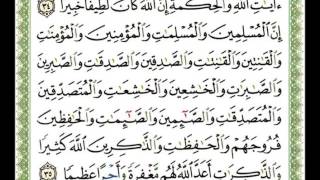 ءَايَٰتِ ٱللَّهِ وَٱلْحِكْمَةِ إِنَّ ٱللَّهَ كَانَ لَطِيفًا خَبِيرًا ٣٤
إِنَّ ٱلْمُسْلِمِينَ وَٱلْمُسْلِمَٰتِ وَٱلْمُؤْمِنِينَ وَٱلْمُؤْمِنَٰتِ
وَٱلْقَٰنِتِينَ وَٱلْقَٰنِتَٰتِ وَٱلصَّٰدِقِينَ وَٱلصَّٰدِقَٰتِ وَٱلصَّٰبِرِينَ
وَٱلصَّٰبِرَٰتِ وَٱلْخَٰشِعِينَ وَٱلْخَٰشِعَٰتِ وَٱلْمُتَصَدِّقِينَ
وَٱلْمُتَصَدِّقَٰتِ وَٱلصَّٰٓئِمِينَ وَٱلصَّٰٓئِمَٰتِ وَٱلْحَٰفِظِينَ
فُرُوجَهُمْ وَٱلْحَٰفِظَٰتِ وَٱلذَّٰكِرِينَ ٱللَّهَ كَثِيرًا
وَٱلذَّٰكِرَٰتِ أَعَدَّ ٱللَّهُ لَهُم مَّغْفِرَةً وَأَجْرًا عَظِيمًا ٣٥